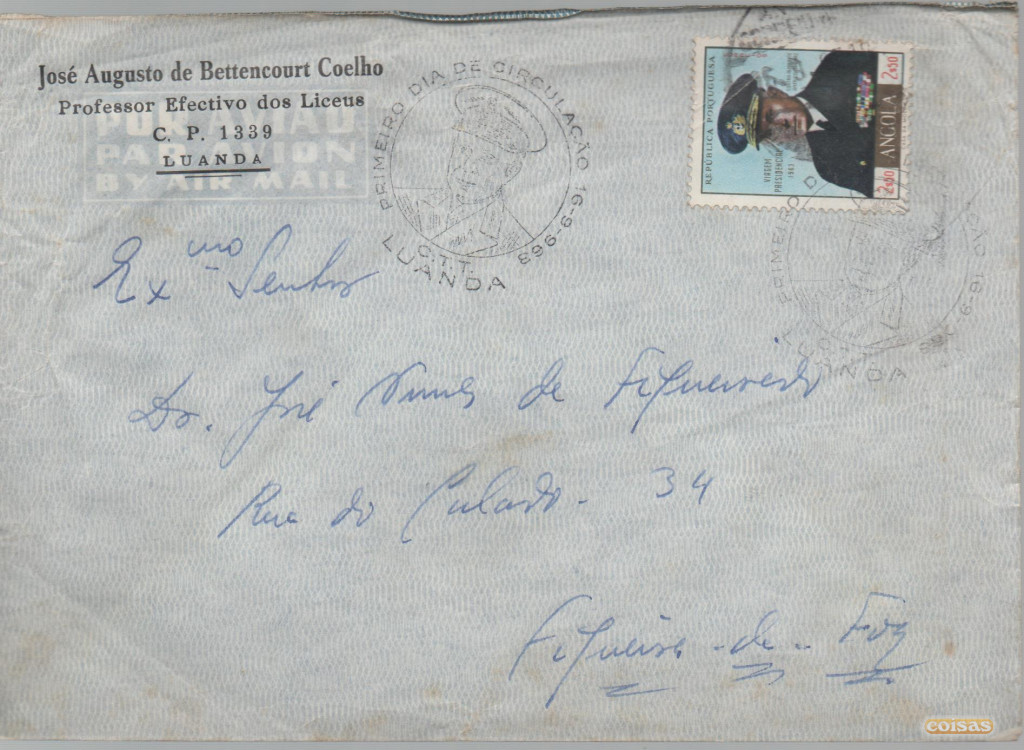 José Augusto de Bettencourt Coelho
Professor Efectivo dos Liceus
C. P. 1339
LUANDA
POR AVIÃO
PAR AVION
BY AIR MAIL
PRIMEIRO DIA DE CIRCULAÇÃO 16-9-963
C.T.T.
LUANDA
REPÚBLICA PORTUGUESA
VIAGEM
PRESIDENCIAL
1963
2$50 ANGOLA 2$50
PRIMEIRO D
O 16-9
LUANDA
Exmo Senhor
Dr. José Nunes de Figueiredo
Rua do 34
Figueira-da-Foz
coisas